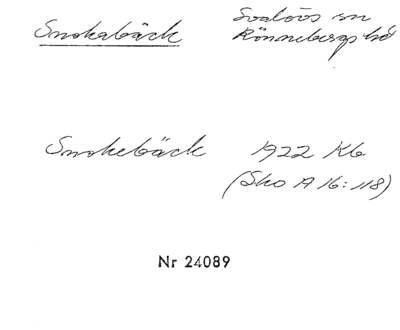 Smokabäck Svalövs sn
Rönnebergs hd
Smokebäck 1922 Kb
(Sko A 16:118)
Nr 24089